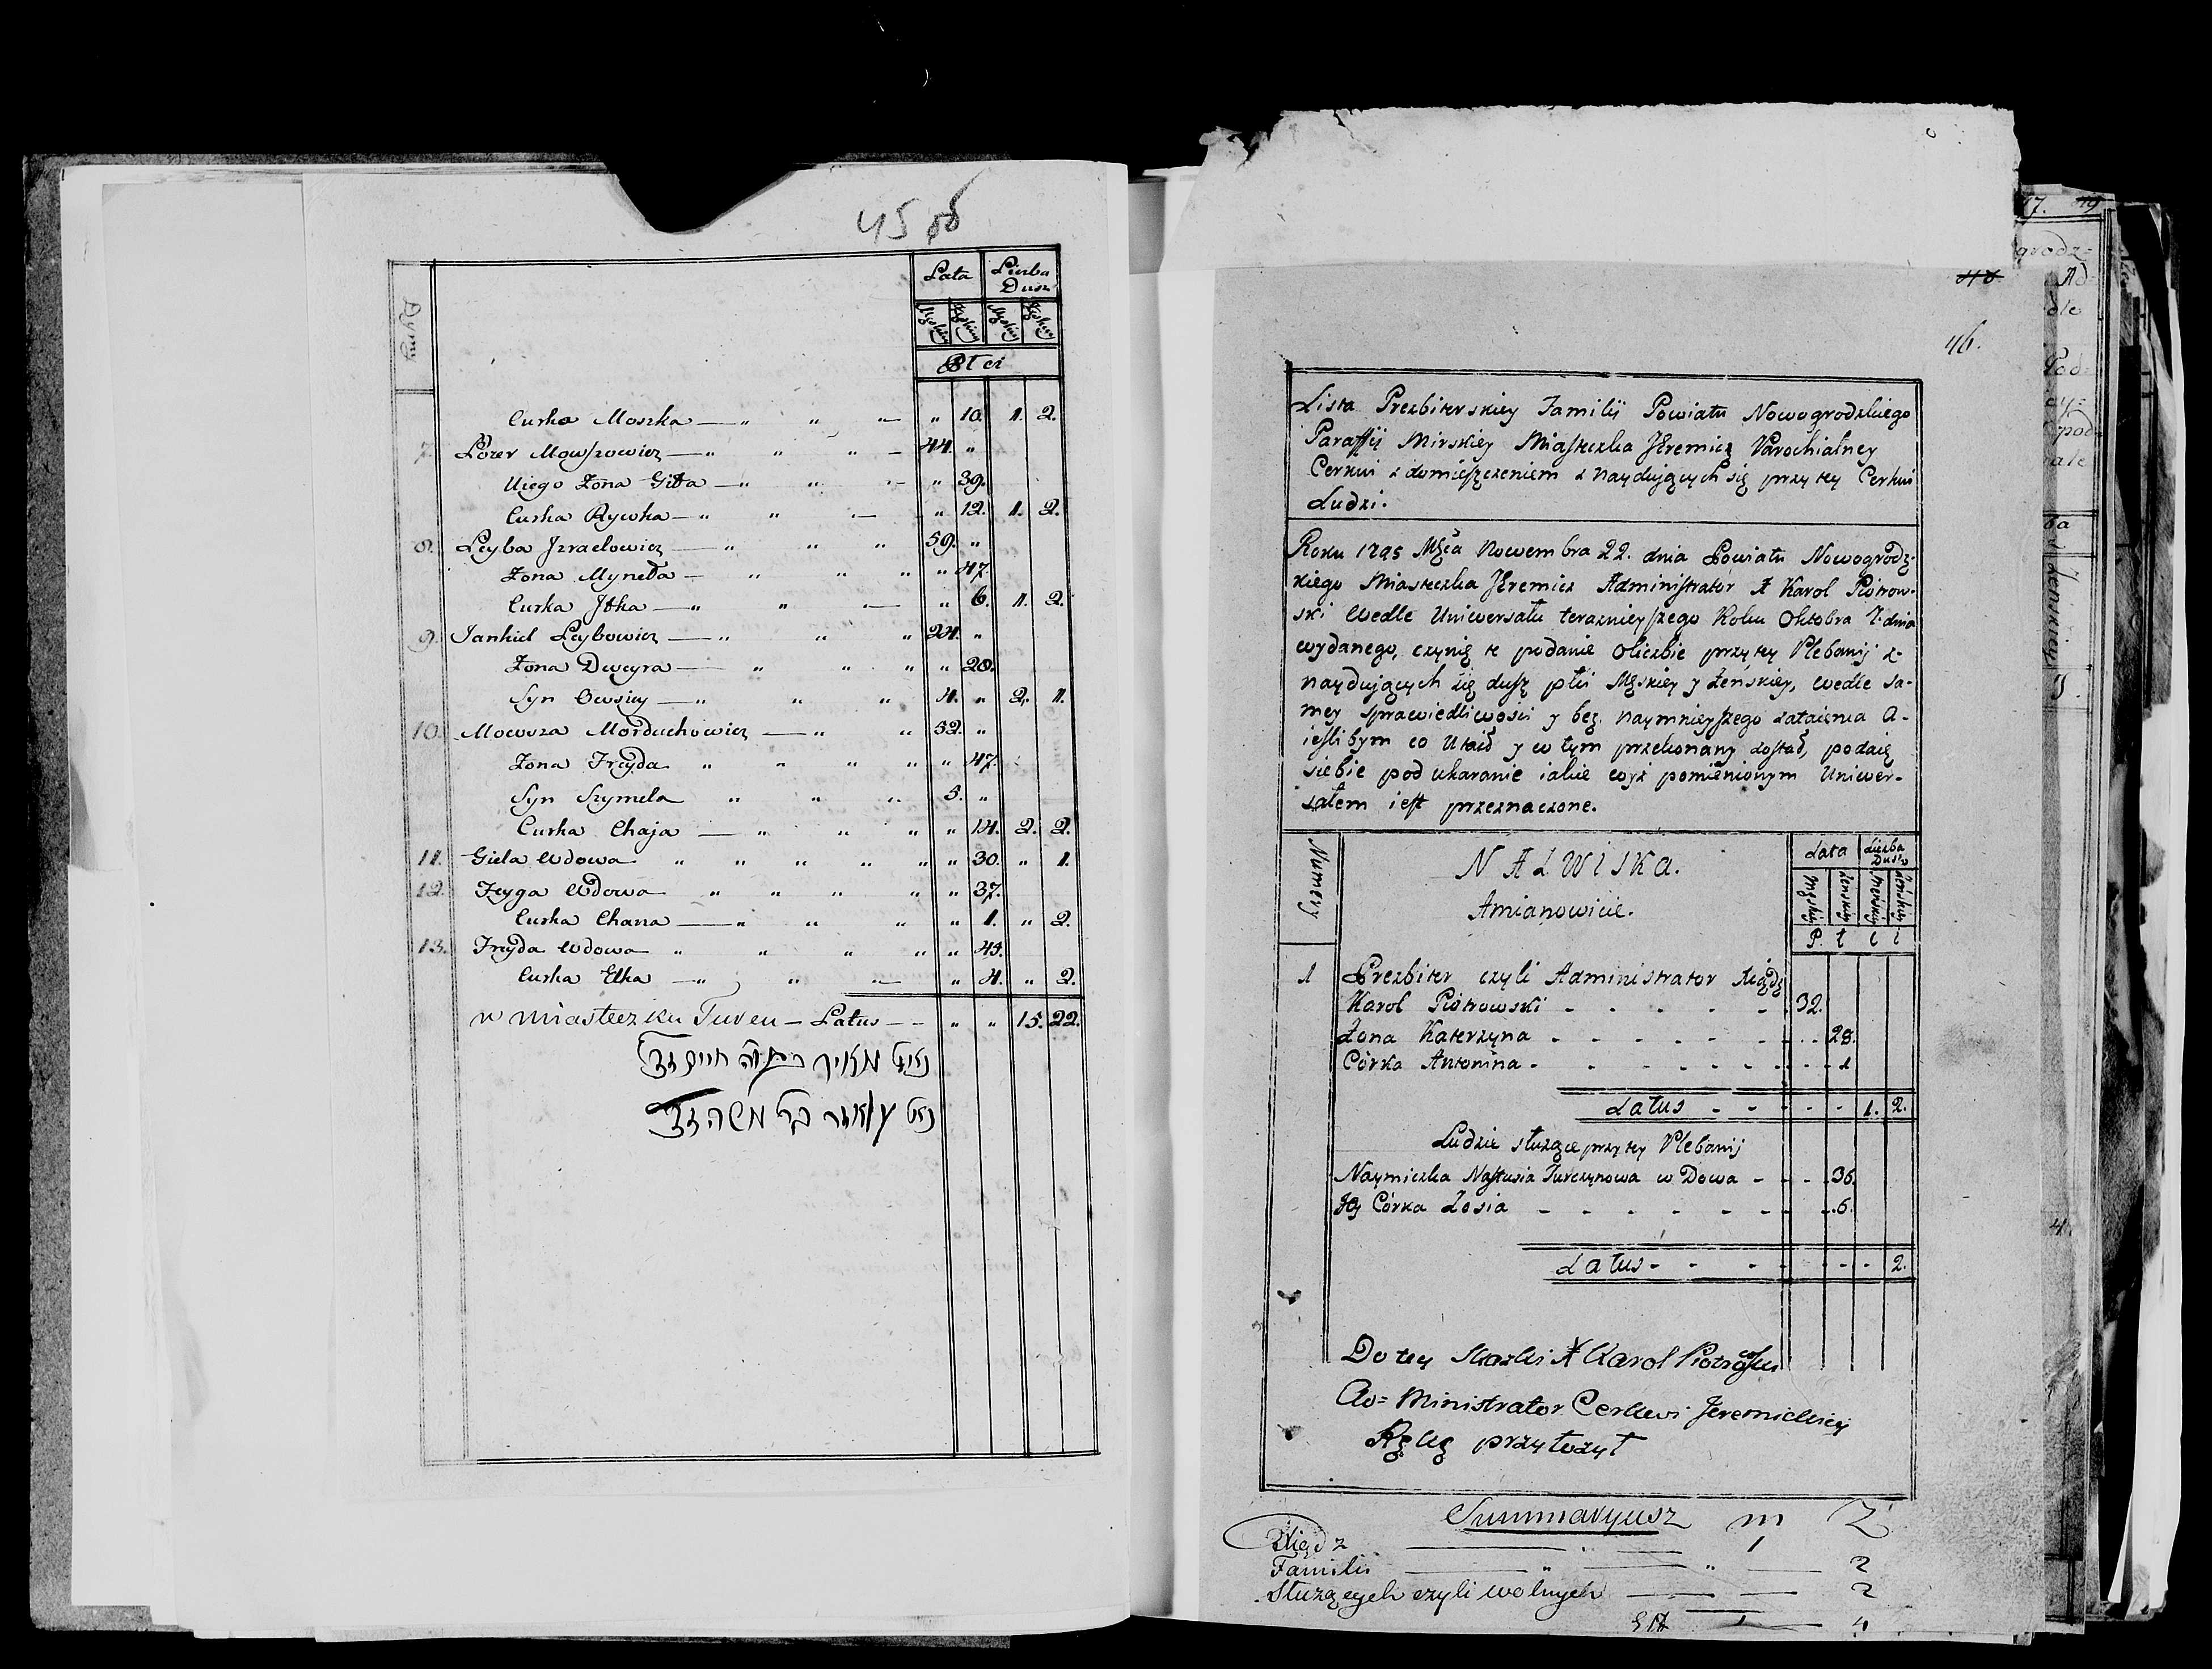 45 об
Dymy
Lata Liczba Dusz
Męskiey Żęskiey Męskiey Żęskiey
Płci
Curka Moszka — " " — " 10. 1. 2.
7. Łozer Mowszowicz — " " " — 44. "
Uiego Żona Gitta — " " — " 39.
Curka Rywka — " " — " 12. 1. 2.
8. Leyba Jzraelowicz — " " " 59. "
Żona Myneta — " " " " 47.
Curka Jtka — " " — " 6. 1. 2.
9. Jankiel Leybowicz — " " " 24. "
Żona Dweyra — " " " " 20.
Syn Owsiey — " " " 4. " 2. 1.
10. Mowsza Morduchowicz — " " 52. "
Żona Freyda " " " " " 47.
Syn Szymela " " " 5. "
Curka Chaja — " " " " 14. 2. 2.
11. Giela Wdowa " " " " " " 30. " 1.
12. Feyga Wdowa " " " " " 37.
Curka Chana — " " " " 1. " 2.
13. Freyda Wdowa " " " " " 45.
Curka Elka — " " — " 4. " 2.
w Miasteczku Turcu — Latus — — " " 15. 22.
משה
48
46.
Lista Prezbiterskiey Familij Powiatu Nowogrodzkiego
Paraffij Mirskiey Miasteczka Jeremicz Parochialney
Cerkwi z domieszczeniem znayduiących się przy tey Cerkwi
Ludzi.
Roku 1795 Mśca Nowembra 22. dnia Powiatu Nowogrodz-
kiego Miasteczka Jeremicz Administrator X Karol Piotrow-
ski Wedle Uniwersału teraznieyszego Roku Oktobra 7. dnia
wydanego, czynię te podanie Oliczbie przy tey Plebanij z-
nayduiących się dusz płci Męskiey y Żenskiey, wedle sa-
mey sprawiedliwosci y bez naymnieyszego zataienia a-
ieslibym co Utaił y w tym przekonany został, podaię
siebie pod ukaranie iakie wyż pomienionym Uniwer-
sałem iest przeznaczone.
Numery
NAZWISKA.
Amianowicie.
Lata Liczba Dusz
Męskiey Żenskiey Męskiey Żenskiey
P. ł c i
1 Prezbiter czyli Administrator Xiądz
Karol Piotrowski - - - - - - 32.
Żona Katerzyna - - - - - - - - 28.
Córka Antonina - - - - - - - - 1
Latus - - - - - 1. 2.
Ludzie służące przy tey Plebanij
Naymiczka Nastusia Jurczynowa w Dowa - - - 36.
Jey Córka Zosia - - - - - - - 6.
Latus - - - - - - 2.
Do tey Skazki X Karol Piotrowski
Ad=Ministrator Cerkwi Jeremickiey
Rękę przyłożył
Summaryusz m Ż
Xiędz — — 1
Familii — " — " — 2
Służących czyli wolnych — — — 2
1 — 4